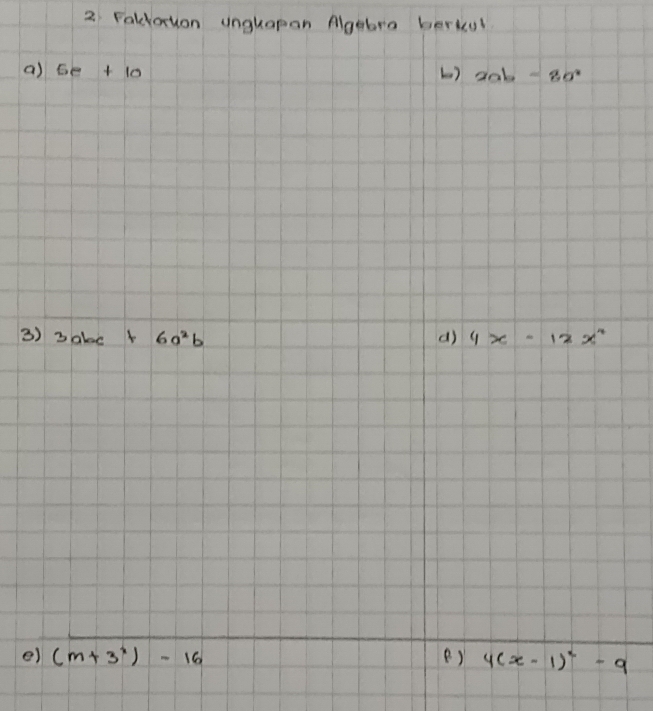 2. Faktorkan ungkapan Algebra berkut.
a) 5e + 10 b) 2ab - 8a²
3) 3abc + 6a²b d) 4x - 12x²
e) (m+3²) - 16 f) 4(x - 1)² - 9